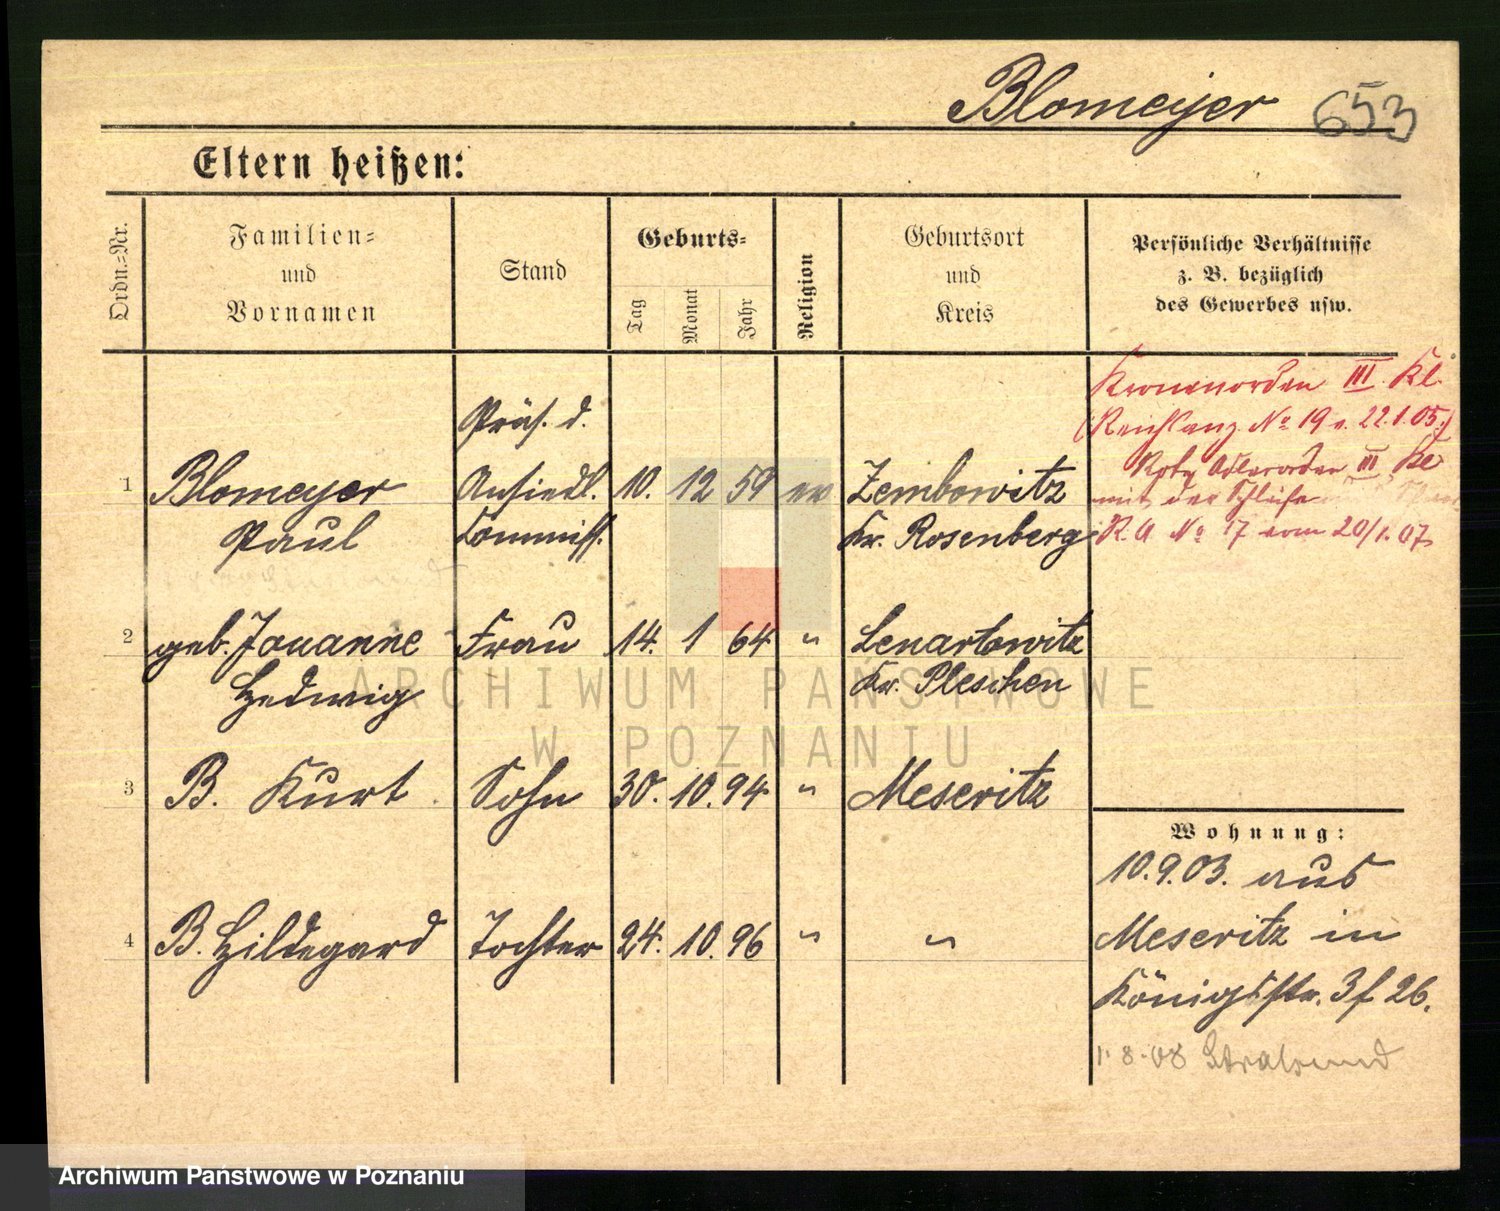 Blomeyer 653
Eltern heißen:
Ordn.=Nr.
Familien=
und
Vornamen
Stand
Geburts=
Tag
Monat
Jahr
Religion
Geburtsort
und
Kreis
Persönliche Verhältnisse
z. B. bezüglich
des Gewerbes usw.
Kronenorden III. Kl.
(Reichsanz No 19 v. 22.1.05.)
Rote Adlerorden III Kl
mit der Schleife
R.A No 17 vom 20/1. 07.
Präs. d.
1 Blomeyer Ansiedl. 10. 12 59 ev Zembowitz
Paul Commiss. Kr. Rosenberg
2 geb. Jouanne Frau 14. 1 64 " Lenartowitz
Hedwig Kr. Pleschen
3 B. Kurt Sohn 30. 10. 94 " Meseritz
4 B. Hildegard Tochter 24. 10. 96 " "
Wohnung:
10.9.03. aus
Meseritz in
Königsstr. 3f 26.
1.8.08 Stralsund
ARCHIWUM PAŃSTWOWE
W POZNANIU
Archiwum Państwowe w Poznaniu